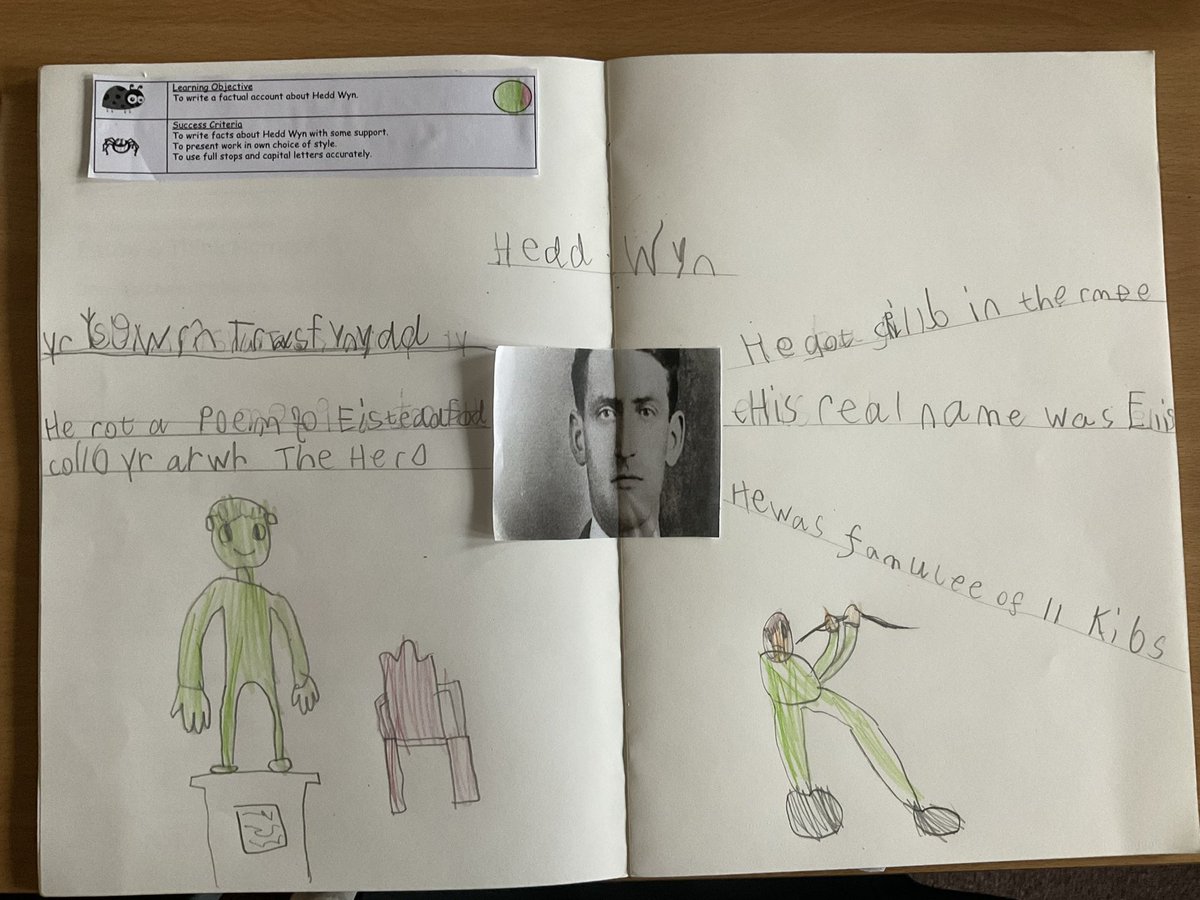 Learning Objective
To write a factual account about Hedd Wyn.
Success Criteria
To write facts about Hedd Wyn with some support.
To present work in own choice of style.
To use full stops and capital letters accurately.
Hedd Wyn
yr
He rot a Poem
yr arwh The Hero
He got in the rmee
His real name was Elis
He was famulee of 11 Kibs